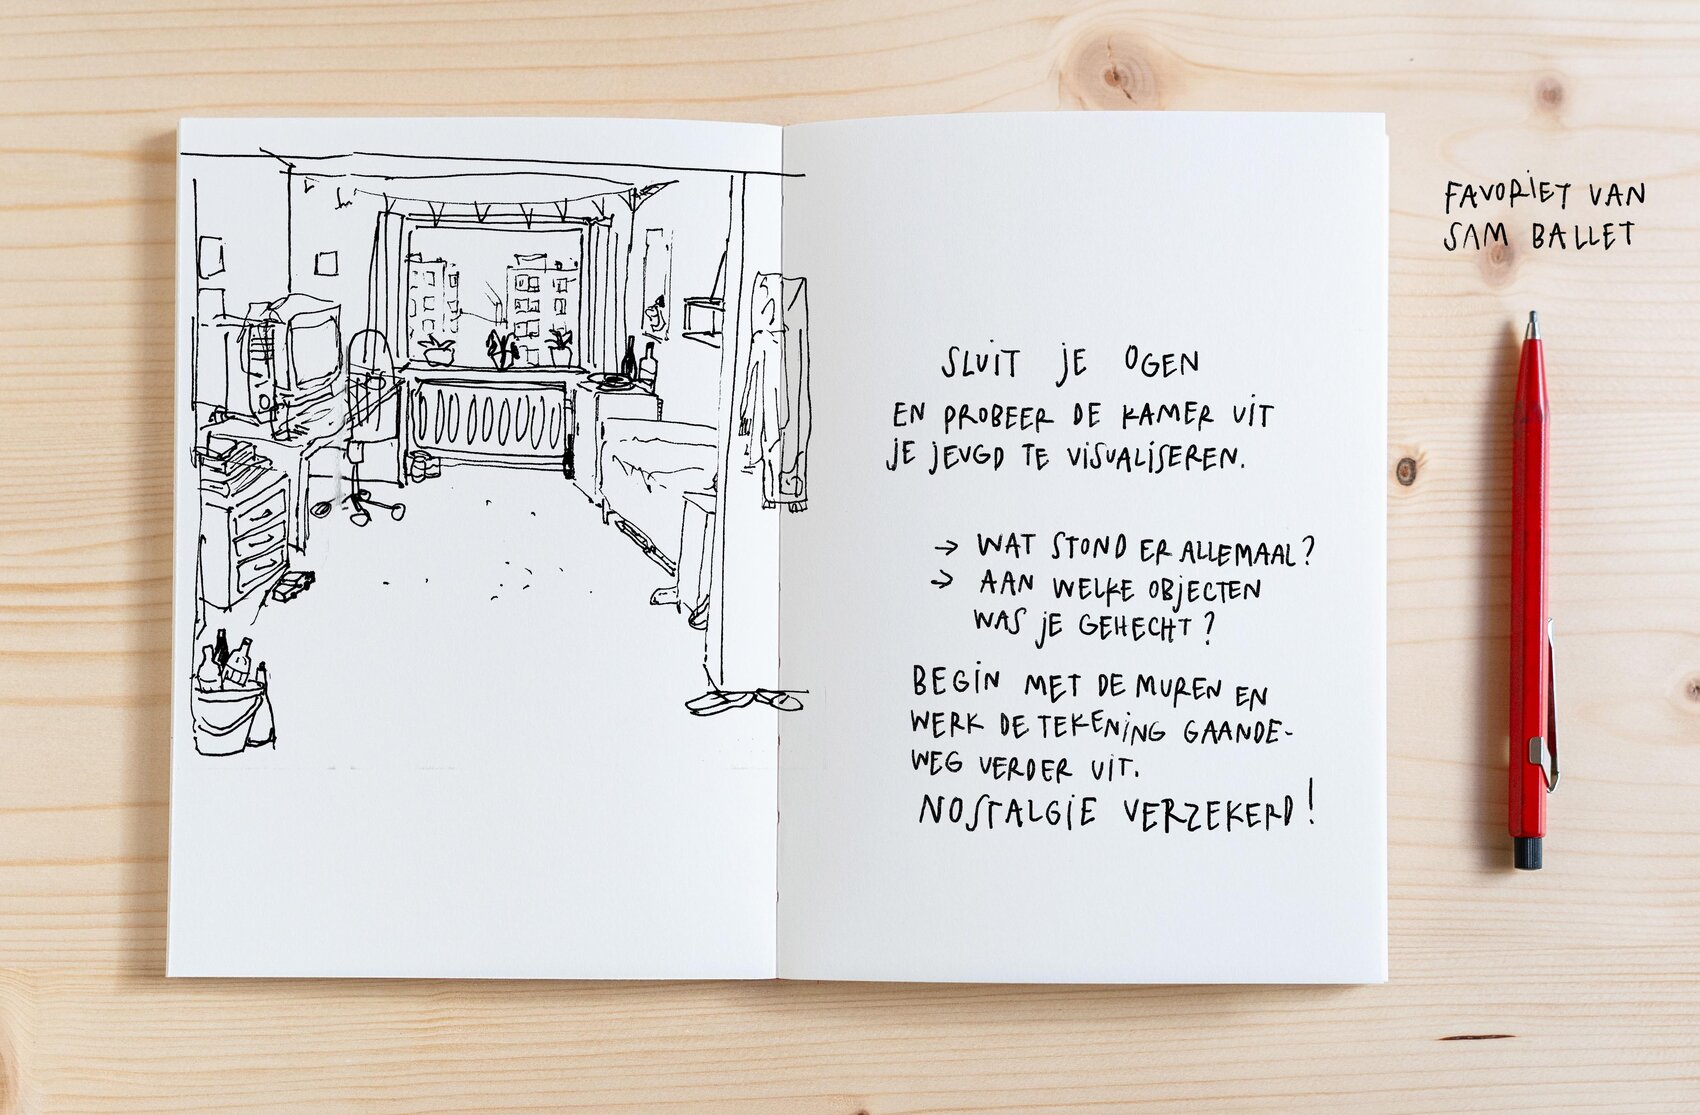 SLUIT JE OGEN
EN PROBEER DE KAMER UIT
JE JEUGD TE VISUALISEREN.
→ WAT STOND ER ALLEMAAL?
→ AAN WELKE OBJECTEN
WAS JE GEHECHT?
BEGIN MET DE MUREN EN
WERK DE TEKENING GAANDE-
WEG VERDER UIT.
NOSTALGIE VERZEKERD!
FAVORIET VAN
SAM BALLET